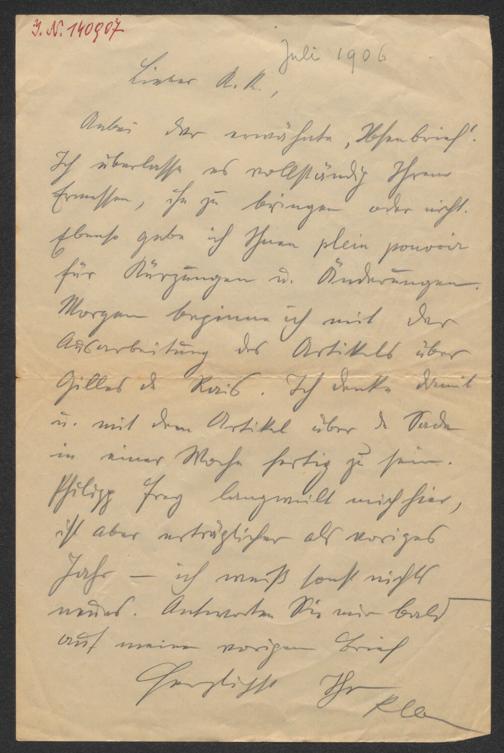 J. N. 140907
Juli 1906
Lieber K. K.,
Anbei der erwähnte „Ibsenbrief“.
Ich überlasse es vollständig Ihrem
Ermessen, ihn zu bringen oder nicht.
Ebenso gebe ich Ihnen plein pouvoir
für Kürzungen u. Änderungen.
Morgen beginne ich mit der
Ausarbeitung des Artikels über
Gilles de Rais. Ich denke damit
u. mit dem Artikel über de Sade
in einer Woche fertig zu sein.
Philipp Frey langweilt mich hier,
ist aber erträglicher als voriges
Jahr — ich weiß sonst nichts
neues. Antworten Sie mir bald
auf meinen vorigen Brief
Herzlichst Ihr